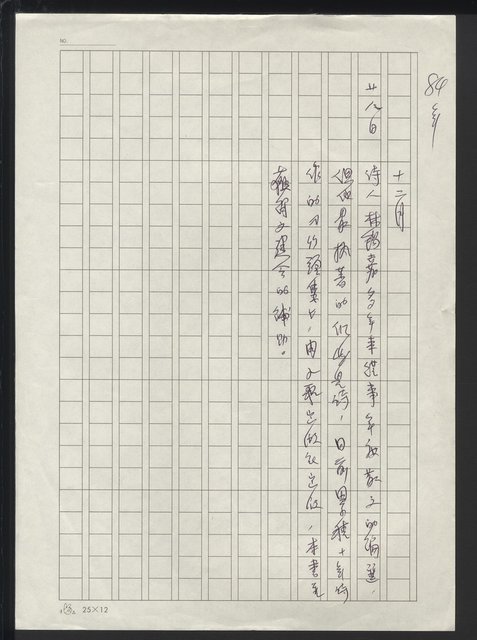 84年
十二月
廿八日
詩人林錫嘉多年來從事年度散文的編選,
但他最執著的仍然是詩,日前累積十年所
作的竹頭集》,由文史出版社出版,本書是
獲得文建會的補助。
NO.
25×12